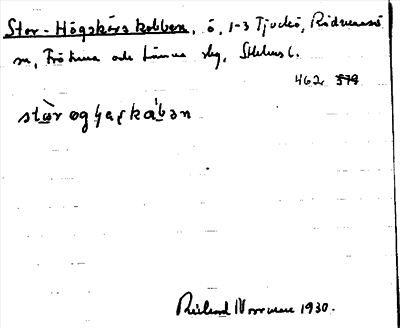 Stor-Högskärskobben, ö, 1-3 Tjockö, Rådmansö
sn, Frötuna och Länna skg, Sthlms l.
462 579
stòr øg
Rikard Norrman 1930.